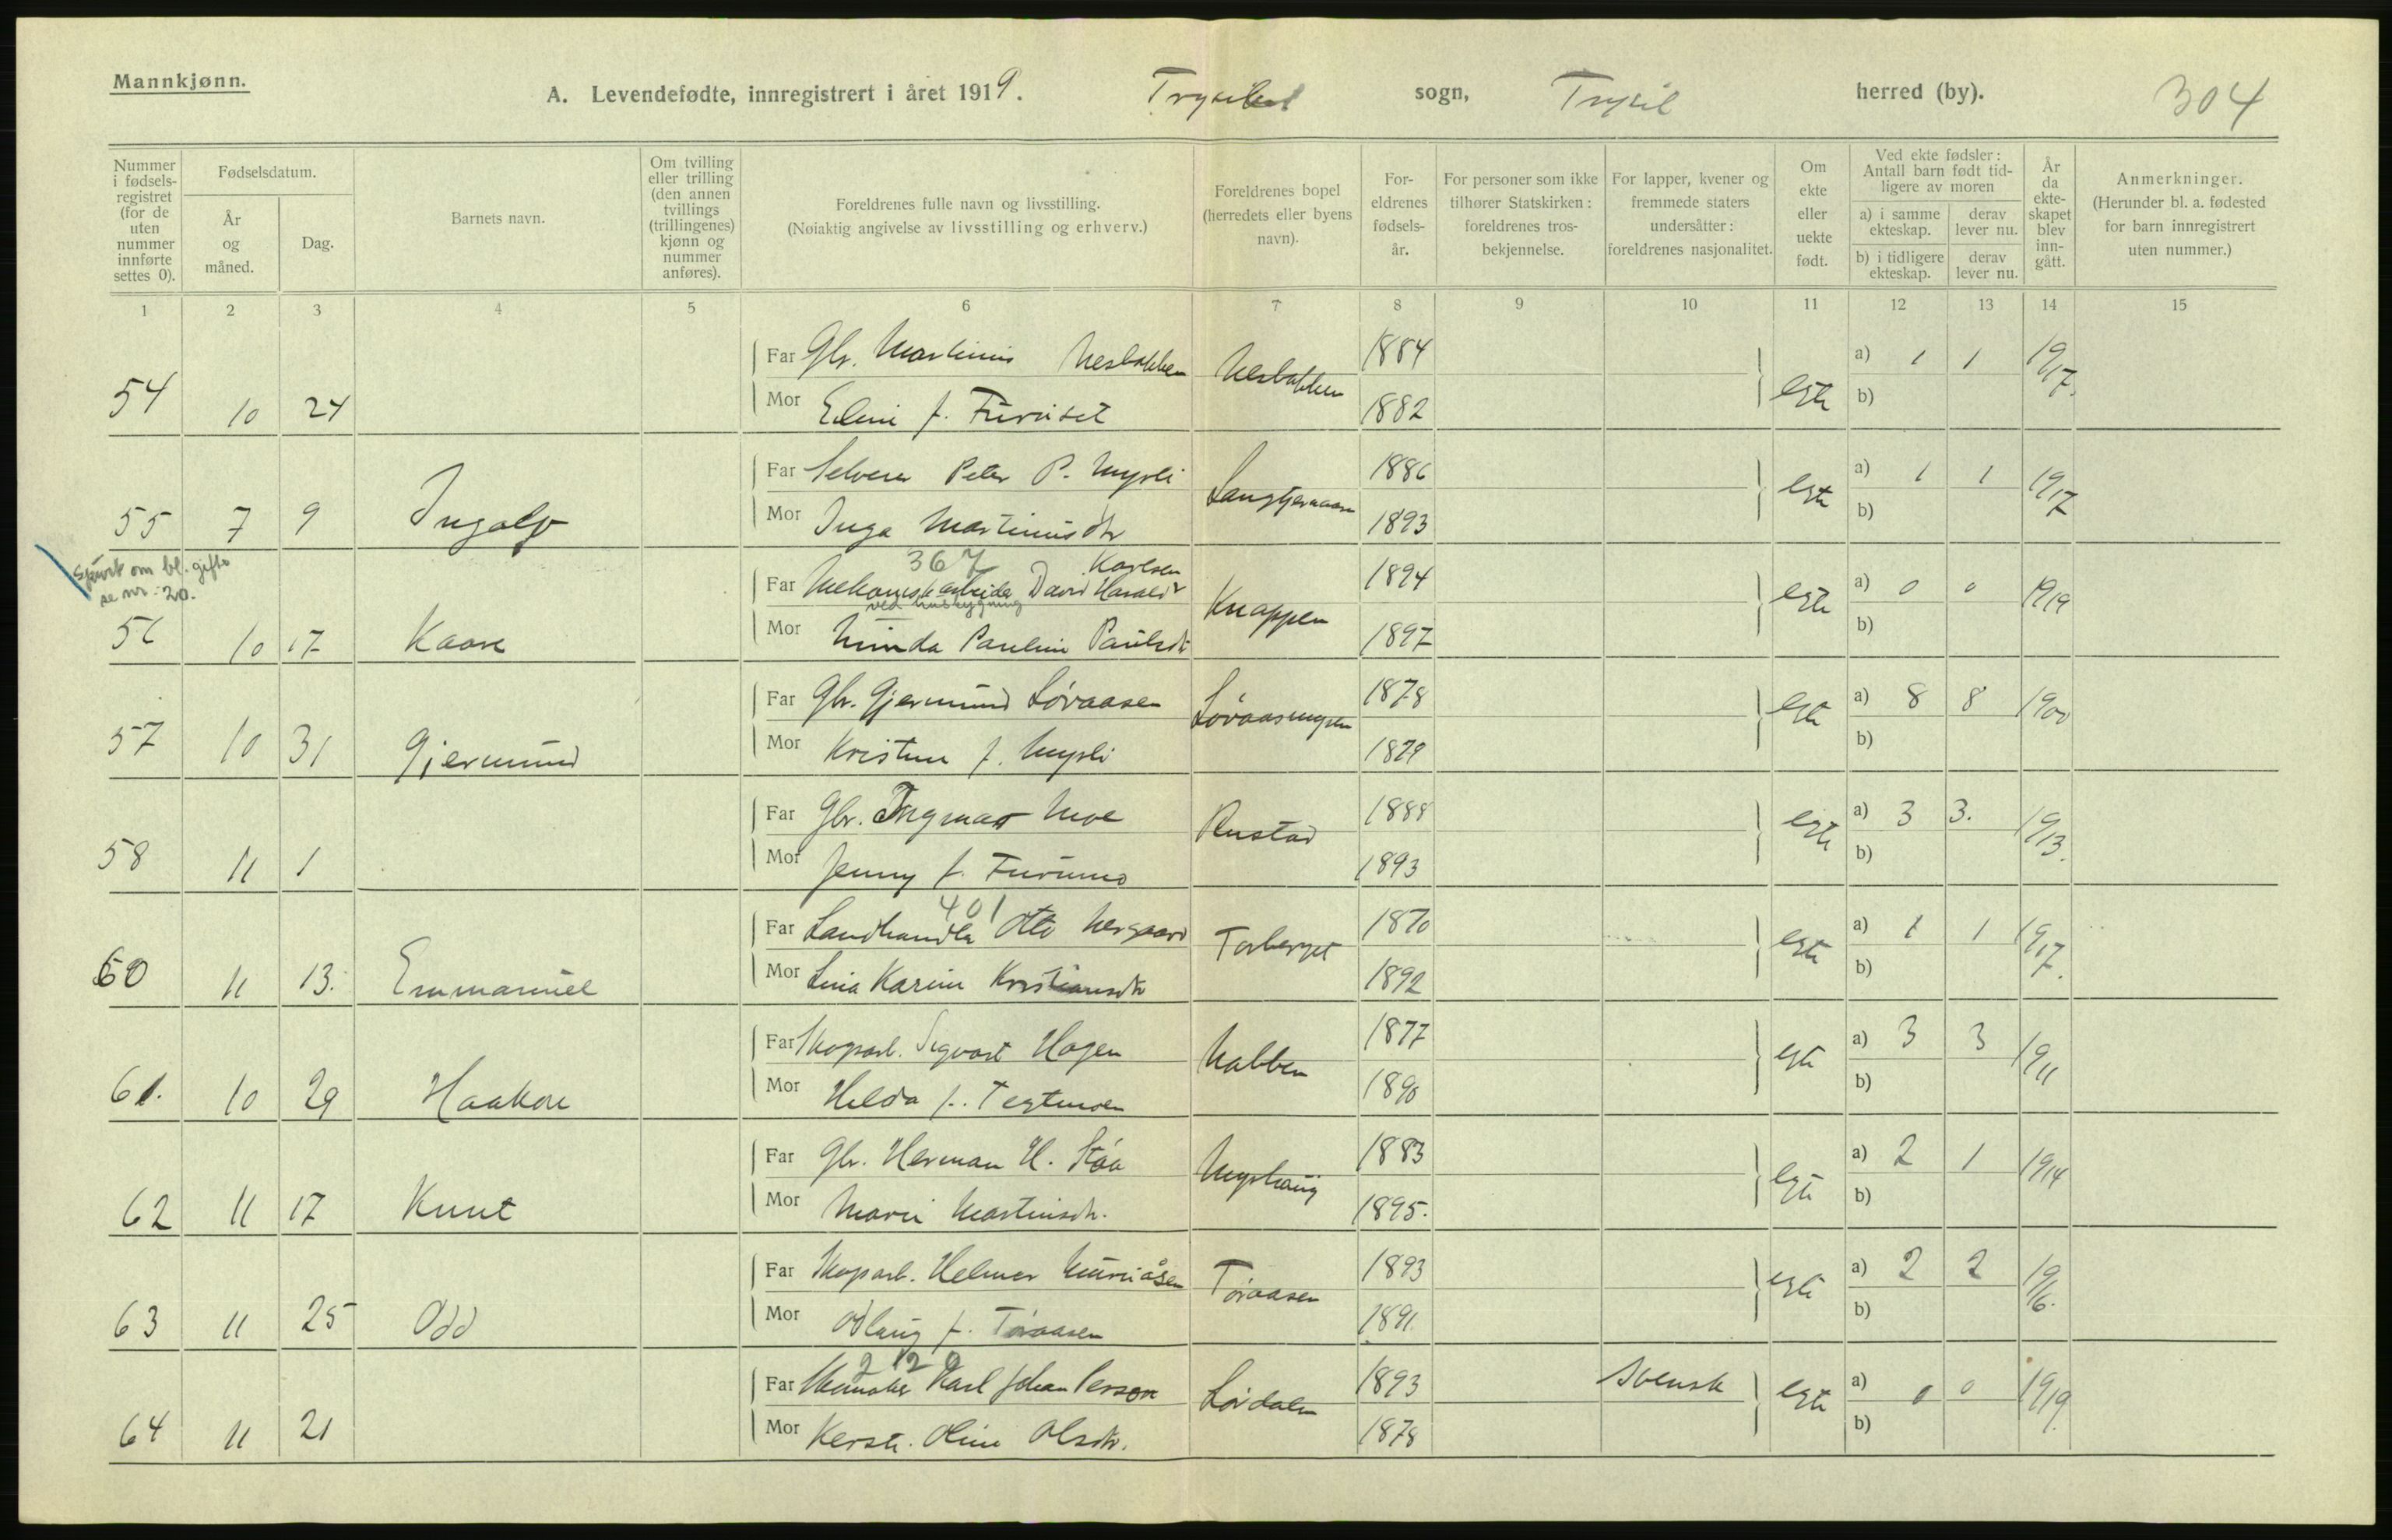 Mannkjønn.
A. Levendefødte, innregistrert i året 1919. Trysil sogn, Trysil herred (by). 304
Nummer i fødsels-registret (for de uten nummer innførte settes 0).
Fødselsdatum.
År og måned.
Dag.
Barnets navn.
Om tvilling eller trilling (den annen tvillings (trillingenes) kjønn og nummer anføres).
Foreldrenes fulle navn og livsstilling.
(Nøiaktig angivelse av livsstilling og erhverv.)
Foreldrenes bopel (herredets eller byens navn).
For-eldrenes fødsels-år.
For personer som ikke tilhører Statskirken: foreldrenes tros-bekjennelse.
For lapper, kvener og fremmede staters undersåtter: foreldrenes nasjonalitet.
Om ekte eller uekte født.
Ved ekte fødsler: Antall barn født tid-ligere av moren
a) i samme ekteskap.
derav lever nu.
b) i tidligere ekteskap.
derav lever nu.
År da ekte-skapet blev inn-gått.
Anmerkninger.
(Herunder bl. a. fødested for barn innregistrert uten nummer.)
1 2 3 4 5 6 7 8 9 10 11 12 13 14 15
Far Gbr. Martinius Nesbakken Nesbakken 1884 a) 1 1 1917.
54 10 24 Mor Eline f. Furuset 1882 egte b)
Far Selveier Peter P. Nysli 1886 a) 1 1 1917
55 7 9 Ingolf Mor Inga Martinusdtr 1893 egte b)
Spurt om bl. gifte
se nr: 20.
367 Karlsen
Far Mekanisk arbeider David Harald Knappen 1894 egte a) 0 0 1919
ved husbygning
56 10 17 Kaare Mor Minda Pauline Paulsdtr 1897 b)
Far Gbr. Gjermund Løvaasen 1878 a) 8 8 1900
57 10 31 Gjermund Mor f. Nysli 1879 egte b)
Far Gbr. Ingmar Moe Rustad 1888 egte a) 3 3. 1913.
58 11 1 Mor Jenny f. Furumo 1893 b)
401
Far Landhandler Otto Nergaard Torberget 1870 egte a) 1 1 1917.
60 11 13. Emmanuel Mor Lina Karine Kristiansdtr 1892 b)
Far Skogarb. Sigvart Hagen Nabben 1877 egte a) 3 3 1911
61. 10 29 Haakon Mor Helda f. 1890 b)
Far Gbr. Herman H. Støa Nyshaug 1883 a) 2 1 1914
62 11 17 Knut Mor Marie Martinsdtr. 1895. egte b)
Far Skogarb. Helmer Tøraasen 1893 egte a) 2 2 1916.
63 11 25 Odd Mor Oddlaug f. Tøraasen 1891. b)
212
Far Skomaker Karl Johan Person Lørdalen 1893 svensk egte a) 0 0 1919.
64 11 21 Mor Kersti Oline Olsdtr. 1878 b)